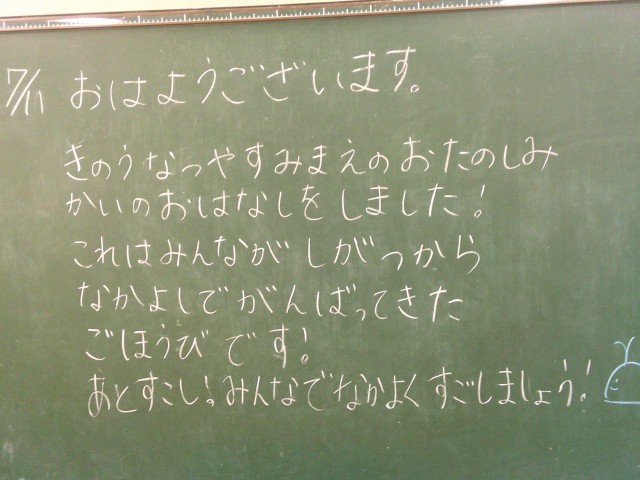 7/11 おはようございます。
きのうなつやすみまえのおたのしみ
かいのおはなしをしました!
これはみんながしがつから
なかよしでがんばってきた
ごほうびです!
あとすこし!みんなでなかよくすごしましょう!